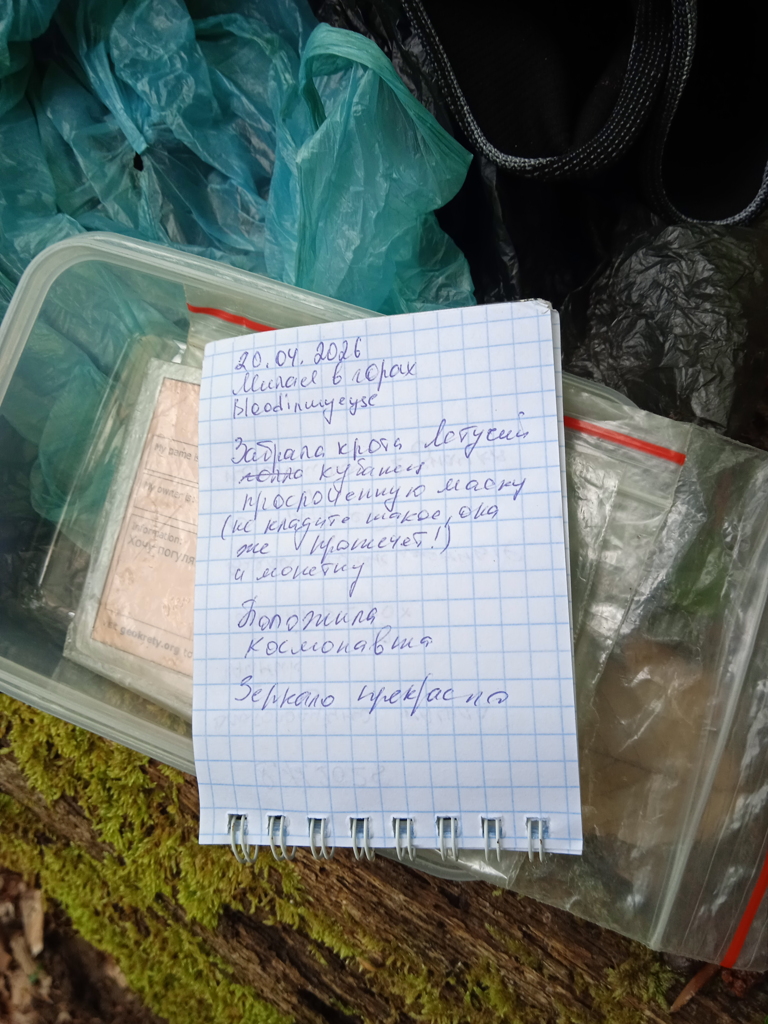 20.04.2026
Милая в горах
bloodinmyeyse
Забрала крота Летучий
кубаноид
просроченную маску
(не кладите такое, она
же протечет!)
и монетку
Положила
космонавта
Зеркало прекрасно
My name
My owner
Information
Хочу погуля
geokrety.org to